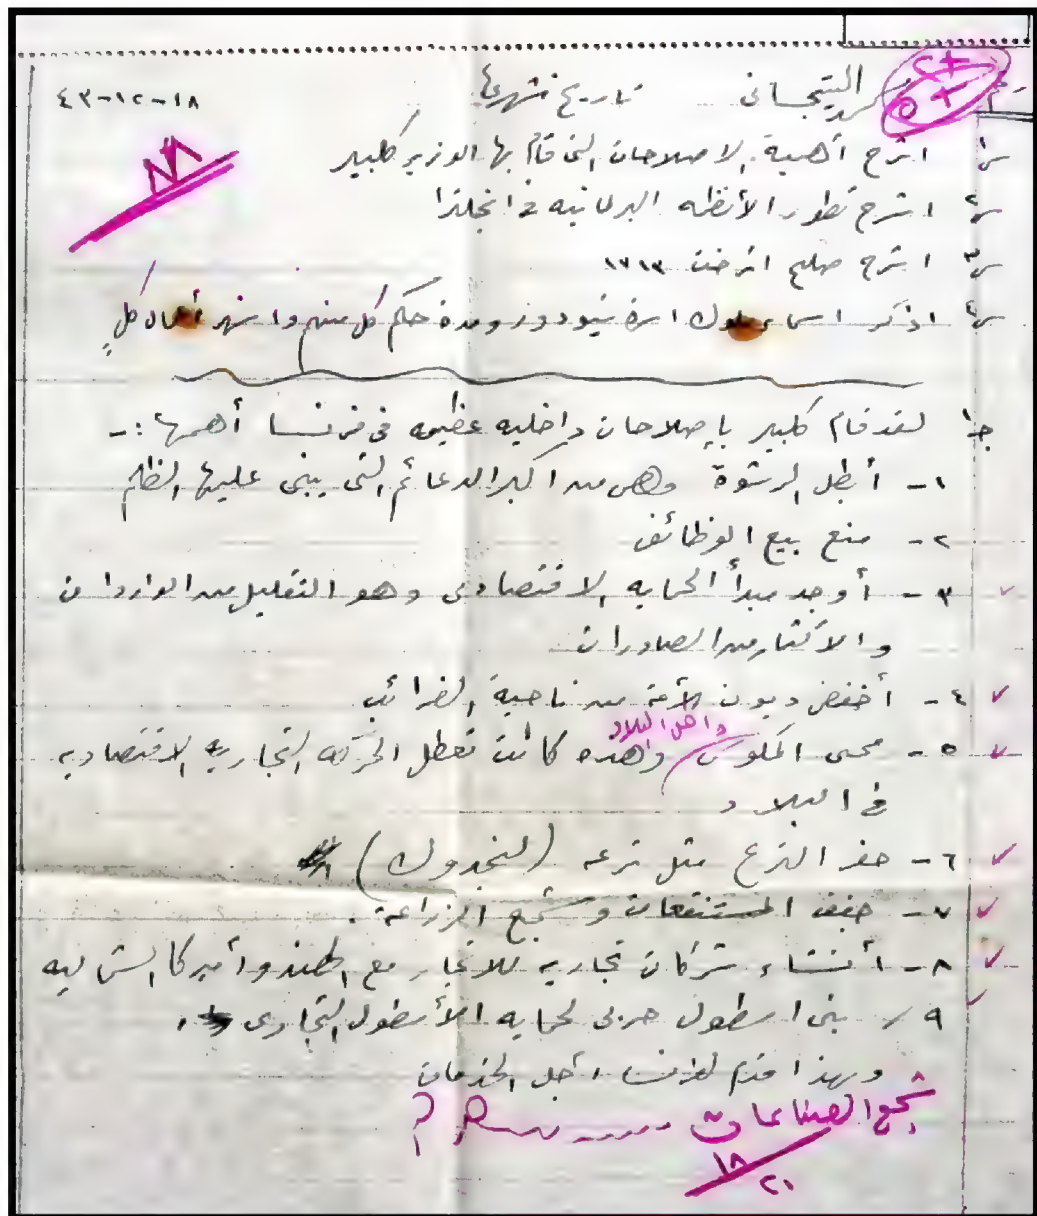 التيجانى تاريخ شهرى ١٨-١٢-٤٣
٧٨
س١ اشرح أهمية الاصلاحات التى قام بها الوزير كلبير
س٢ اشرح تطور الأنظمه البرلمانيه فى انجلترا
س٣ اشرح صلح اترخت ١٧١٣
س٤ اذكر اسماء ملوك اسرة تيودور ومدة حكم كل منهم واشهر أعمال كلٍ
ج١ لقد قام كلبير بإصلاحات داخليه عظيمه فى فرنسا أهمها :-
١- أبطل الرشوة وهى من اكبر الدعائم التى يبنى عليها الظلم
٢- منع بيع الوظائف
٣- أوجد مبدأ الحمايه الاقتصادى وهو التقليل من الواردات
والاكثار من الصادرات
٤- أخفض ديون الأمة من ناحية الضرائب
داخل البلاد
٥- محى المكوس وهذه كانت تعطل الحركه التجاريه الاقتصاديه
فى البلاد
٦- حفر الترع مثل ترعه (لنجدوك)
٧- جفف المستنقعات وشجع الزراعة.
٨- أنشاء شركات تجاريه للاتجار مع الهند وأميركا الشماليه
٩- بنى اسطول حربى لحمايه الأسطول التجارى
وبهذا قدم لفرنسا اجل الخدمات
شجع الصناعات
١٨
٢٠